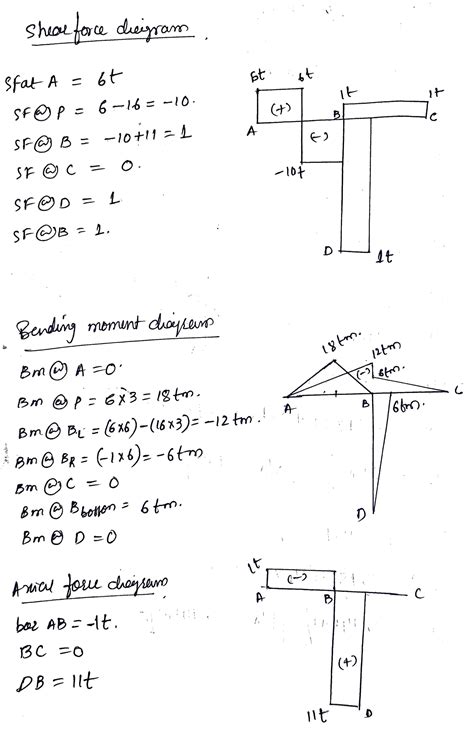 Shear force diagram
Sf at A = 6t
SF @ P = 6-16 = -10.
SF @ B = -10+11 = 1
SF @ C = 0.
SF @ D = 1
SF @ B = 1.
6t 6t
(+)
A
(-)
-10t
1t 1t
B C
D 1t
Bending moment diagram
Bm @ A = 0.
Bm @ P = 6x3 = 18tm.
Bm @ BL = (6x6)-(16x3) = -12 tm.
Bm @ BR = (-1x6) = -6tm
Bm @ C = 0
Bm @ Bbottom = 6tm.
Bm @ D = 0
18tm.
12tm
(-) 6tm.
A B C
6tm.
D
Axial force diagram
bar AB = -1t.
BC = 0
DB = 11t
1t
(-)
A B C
(+)
11t D